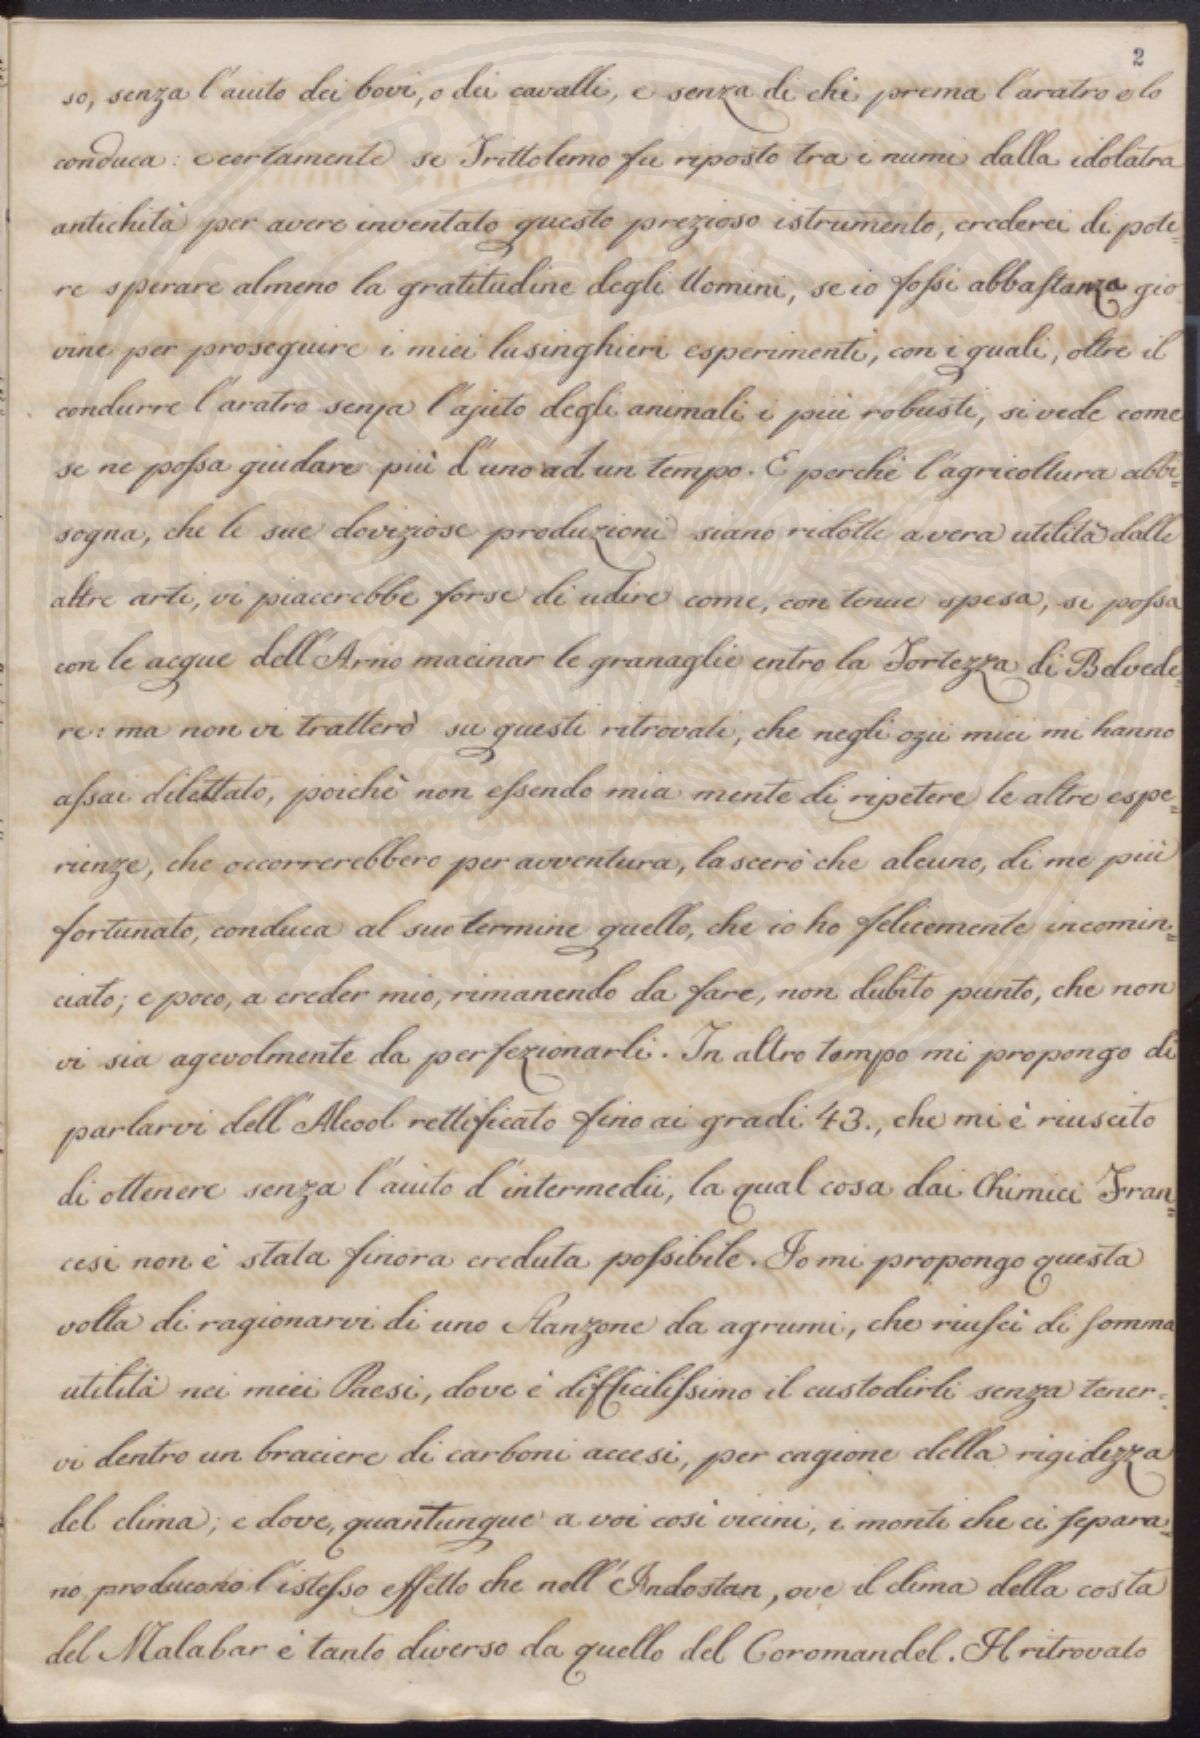 2
so, senza l'aiuto dei bovi, o dei cavalli, e senza di chi prema l'aratro e lo
conduca: e certamente se Trittolemo fu riposto tra i numi dalla idolatra
antichità per avere inventato questo prezioso istrumento, crederei di pote=
re sperare almeno la gratitudine degli Uomini, se io fossi abbastanza gio
vine per proseguire i miei lusinghieri esperimenti, con i quali, oltre il
condurre l'aratro senza l'ajuto degli animali i più robusti, si vede come
se ne possa guidare più d'uno ad un tempo. E perchè l'agricoltura abbi=
sogna, che le sue doviziose produzioni siano ridotte a vera utilità dalle
altre arti, vi piacerebbe forse di udire come, con tenue spesa, si possa
con le acque dell'Arno macinar le granaglie entro la Fortezza di Belvede=
re: ma non vi tratterò su questi ritrovati, che negli ozii miei mi hanno
assai dilettato, poichè non essendo mia mente di ripetere le altre espe=
rienze, che occorrerebbero per avventura, lascerò che alcuno, di me più
fortunato, conduca al suo termine quello, che io ho felicemente incomin=
ciato; e poco, a creder mio, rimanendo da fare, non dubito punto, che non
vi sia agevolmente da perfezionarli. In altro tempo mi propongo di
parlarvi dell'Alcool rettificato fino ai gradi 43., che mi è riuscito
di ottenere senza l'aiuto d'intermedii, la qual cosa dai Chimici Fran=
cesi non è stata finora creduta possibile. Io mi propongo questa
volta di ragionarvi di uno Stanzone da agrumi, che riuscì di somma
utilità nei miei Paesi, dove è difficilissimo il custodirli senza tener=
vi dentro un braciere di carboni accesi, per cagione della rigidezza
del clima; e dove, quantunque a voi così vicini, i monti che ci separa=
no producono l'istesso effetto che nell'Indostan, ove il clima della costa
del Malabar è tanto diverso da quello del Coromandel. Il ritrovato